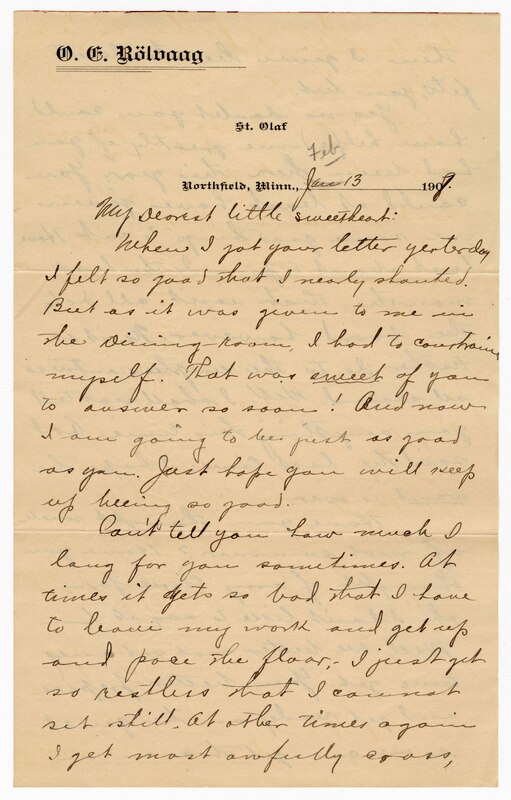 O. E. Rölvaag
St. Olaf
Feb
Northfield, Minn., Jan 13 1909.
My Dearest little sweetheart:
When I got your letter yesterday
I felt so good that I nearly shouted.
But as it was given to me in
the Dining-room, I had to constrain
myself. That was sweet of you
to answer so soon! And now
I am going to be just as good
as you. Just hope you will keep
up beeing so good.
Can't tell you how much I
long for you sometimes. At
times it gets so bad that I have
to leave my work and get up
and pace the floor,- I just get
so restless that I cannot
set still. At other times again
I get most awfully cross,